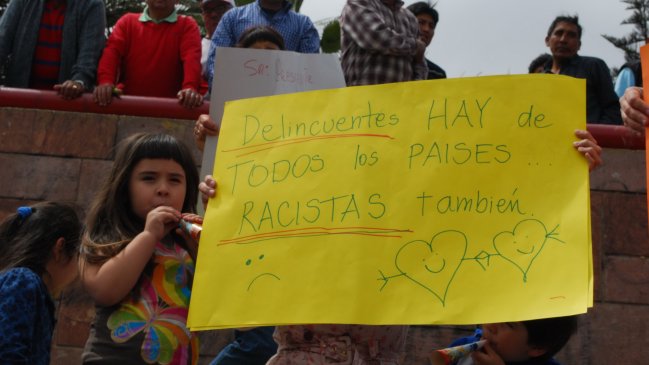 Sr: Presidente
DELINCUENTES HAY de
TODOS los PAISES ...
RACISTAS también.